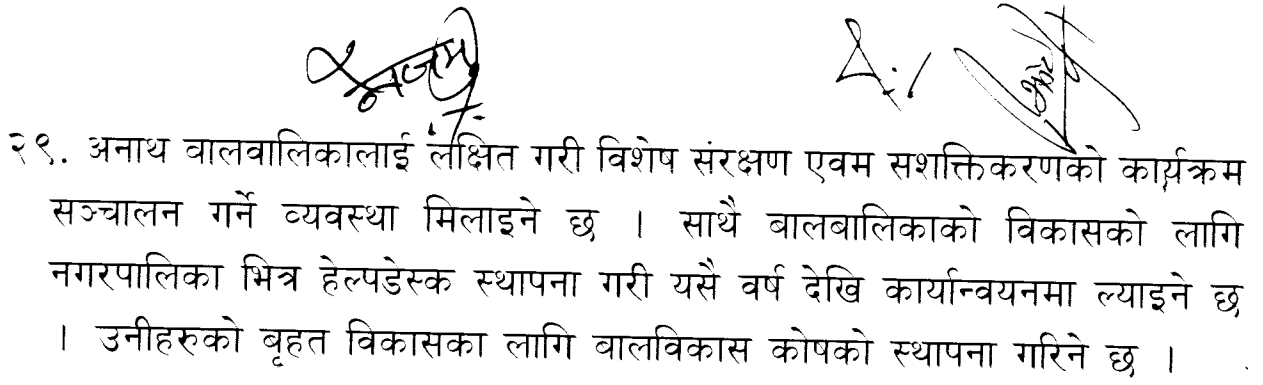 २९. अनाथ वालवालिकालाई लक्षित गरी विशेष संरक्षण एवम सशक्तिकरणको कार्यक्रम
सञ्चालन गर्ने व्यवस्था मिलाइने छ । साथै बालबालिकाको विकासको लागि
नगरपालिका भित्र हेल्पडेस्क स्थापना गरी यसै वर्ष देखि कार्यान्वयनमा ल्याइने छ
। उनीहरुको बृहत विकासका लागि बालविकास कोषको स्थापना गरिने छ ।